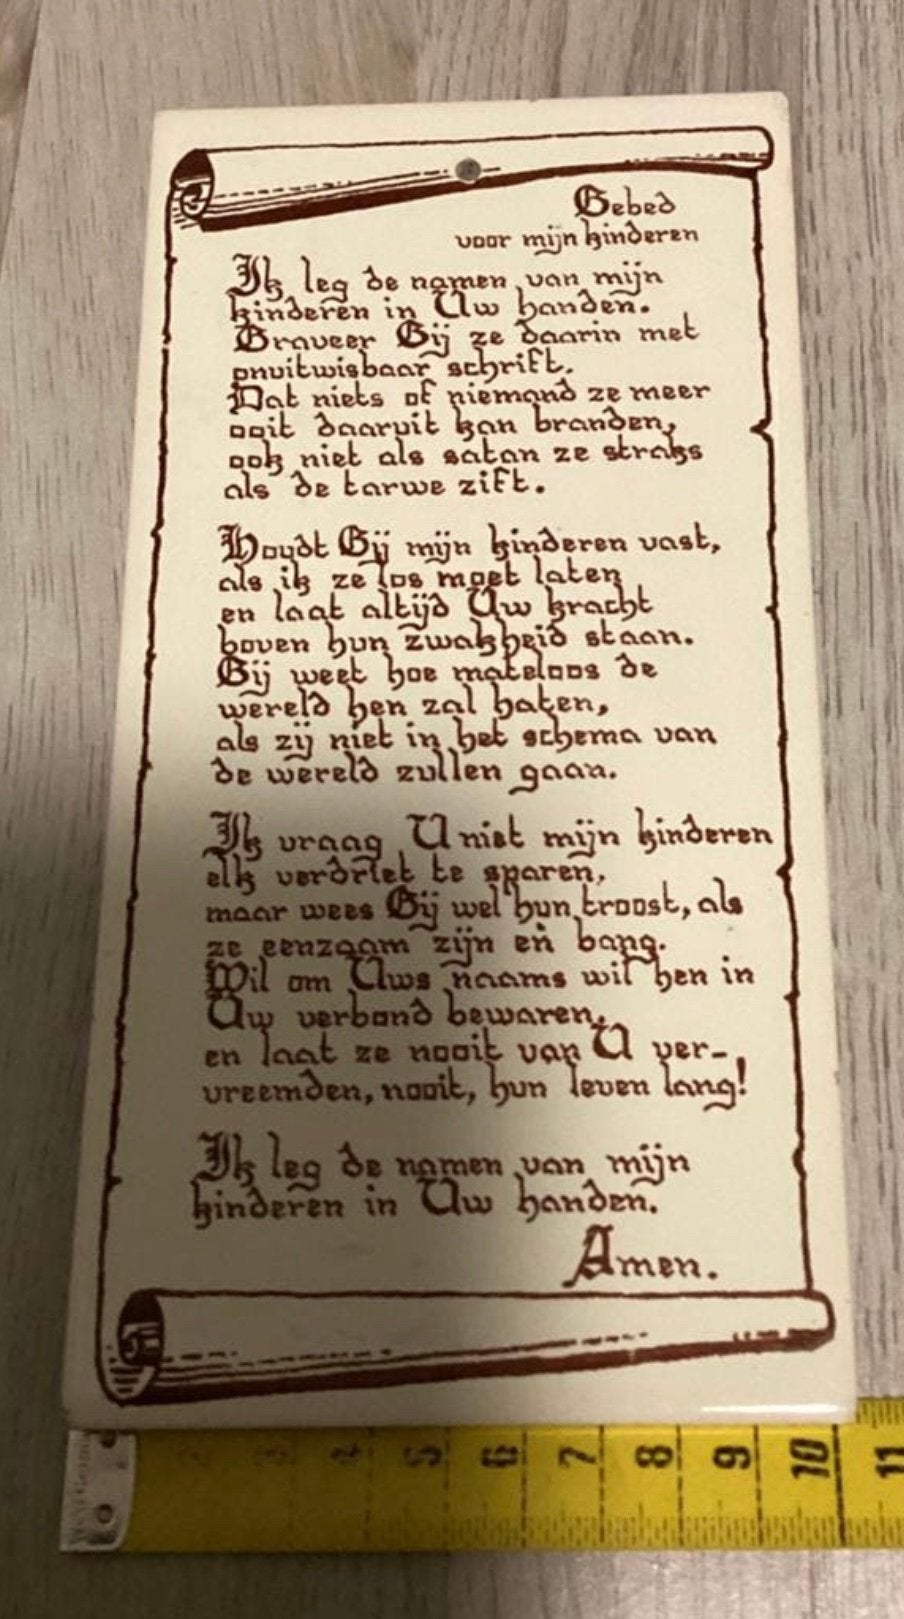 Gebed
voor mijn kinderen
Ik leg de namen van mijn
kinderen in Uw handen.
Graveer Gij ze daarin met
onuitwisbaar schrift.
Dat niets of niemand ze meer
ooit daaruit kan branden,
ook niet als satan ze straks
als de tarwe zift.
Houdt Gij mijn kinderen vast,
als ik ze los moet laten
en laat altijd Uw kracht
boven hun zwakheid staan.
Gij weet hoe mateloos de
wereld hen zal haten,
als zij niet in het schema van
de wereld zullen gaan.
Ik vraag U niet mijn kinderen
elk verdriet te sparen,
maar wees Gij wel hun troost, als
ze eenzaam zijn en bang.
Wil om Uws naams wil hen in
Uw verbond bewaren,
en laat ze nooit van U ver-
vreemden, nooit, hun leven lang!
Ik leg de namen van mijn
kinderen in Uw handen.
Amen.
2 3 4 5 6 7 8 9 10 11